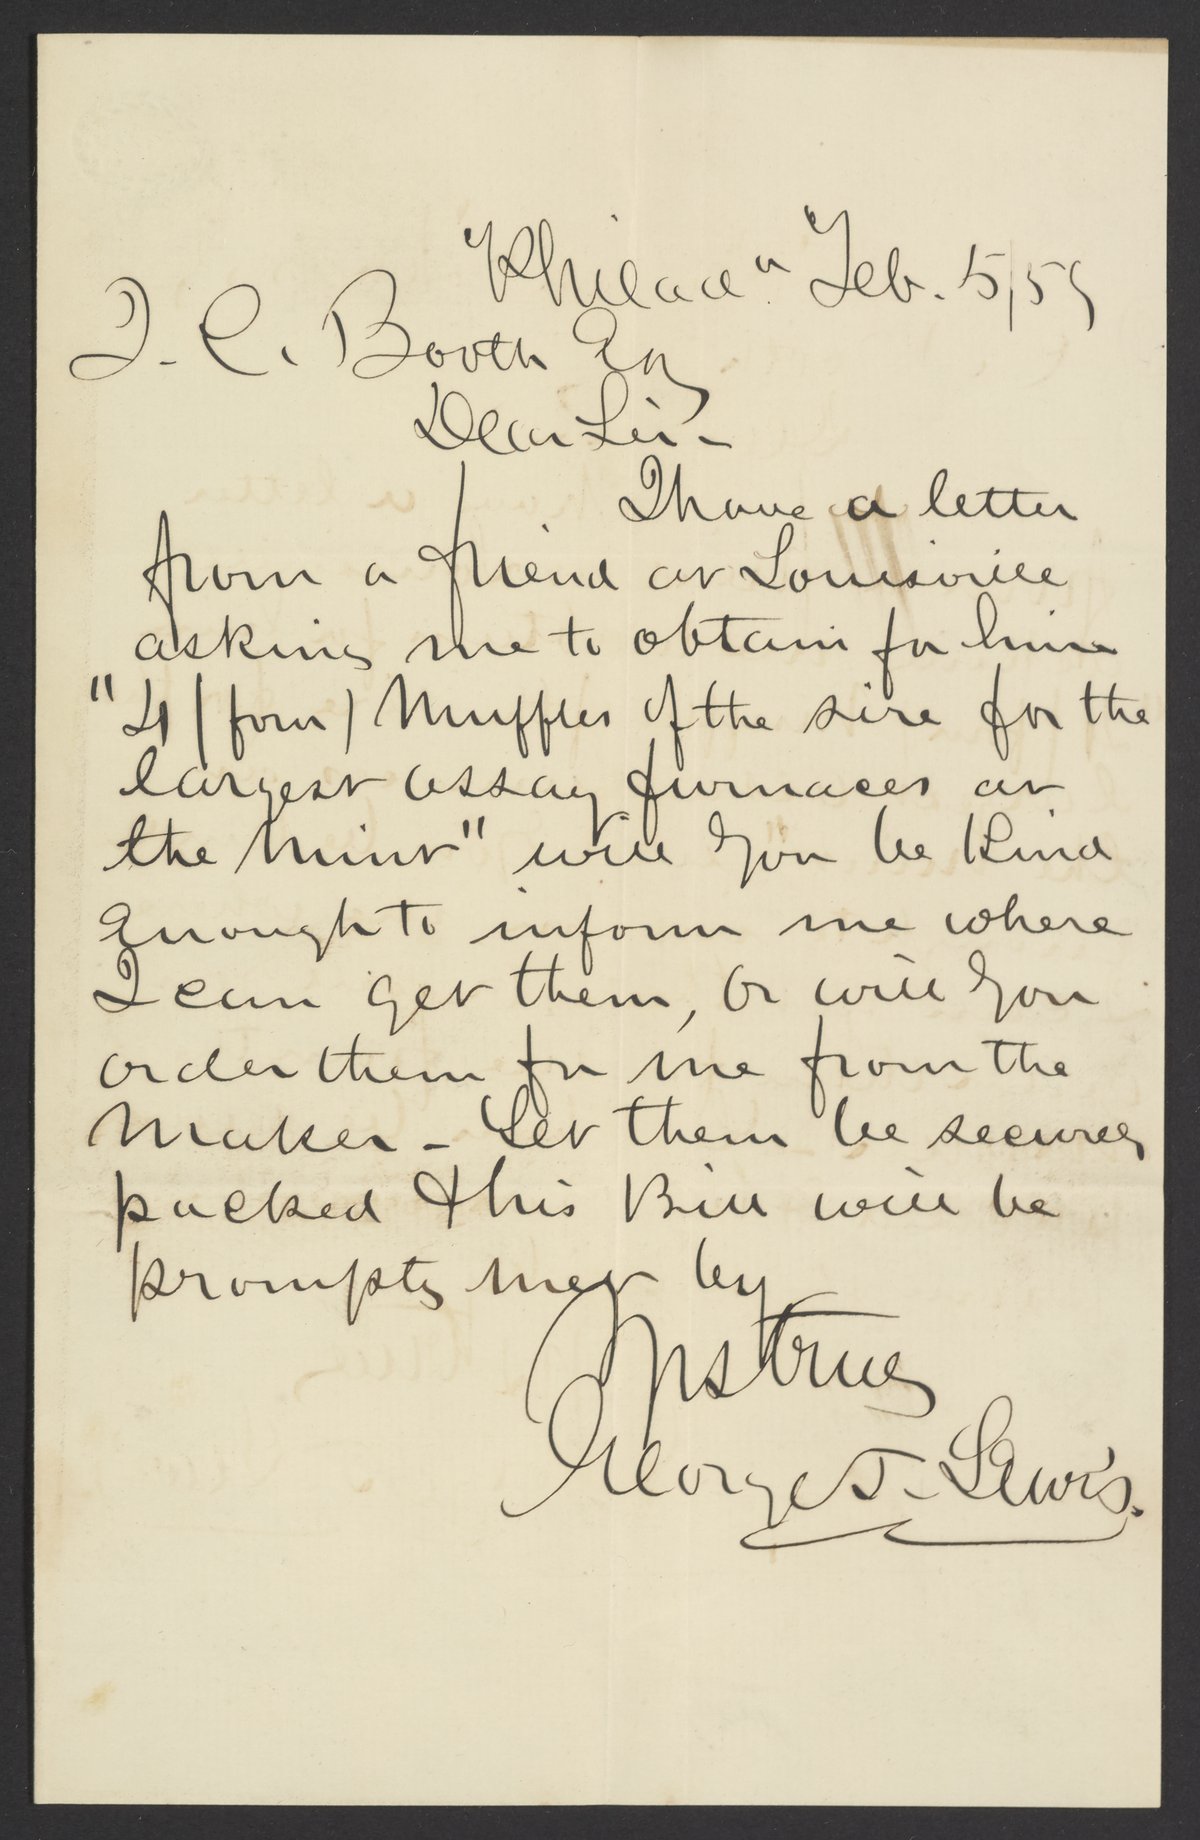 Philad.a Feb. 5/59
J. C. Booth Esq
Dear Sir -
I have a letter
from a friend at Louisville
asking me to obtain for him
"4 (four) Muffles of the size for the
largest assay furnaces at
the Mint" will you be kind
enough to inform me where
I can get them, or will you
order them for me from the
maker - Let them be securely
packed & his Bill will be
promptly met by
Yrs truly
George T. Lewis.